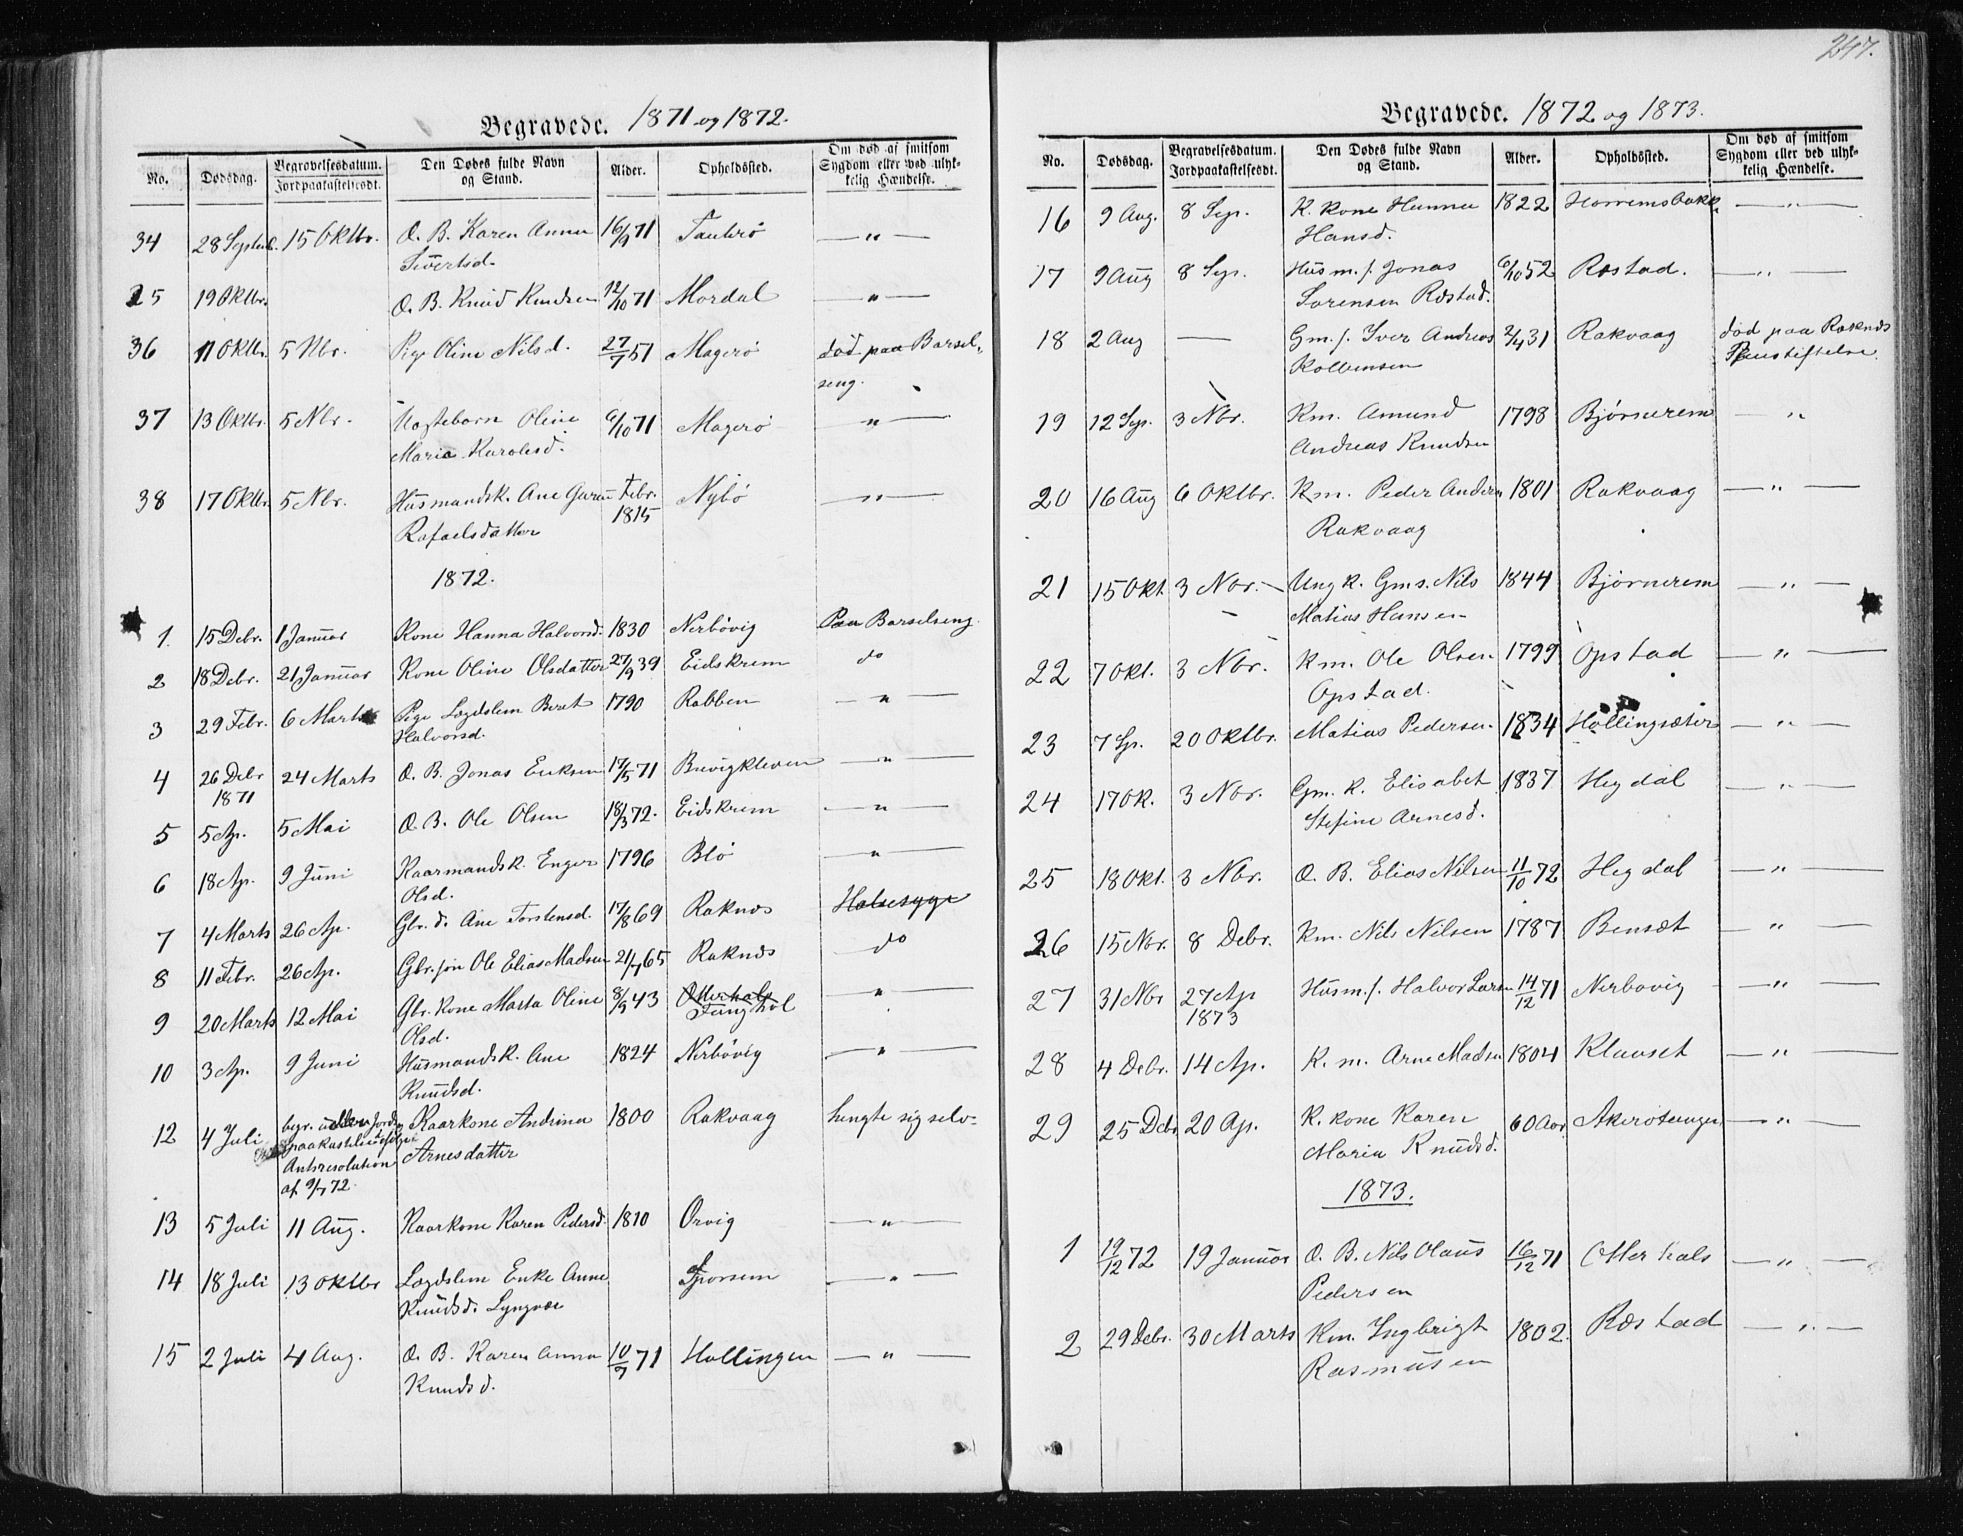 247.
Begravede. 1871 og 1872.
No. Dødsdag. Begravelsesdatum. Jordpaakastelsesdt. Den Dødes fulde Navn og Stand. Alder. Opholdssted. Om død af smitsom Sygdom eller ved ulykkelig Hændelse.
34 28 Septbr. 15 Oktbr. O. B. Karen Anna 16/9 71 Tauterø — " —
Sivertsd.
35 19 Oktbr. O. B. Knud Knudsen 12/10 71 Mordal — " —
36 11 Oktbr. 5 Nbr. Pige Oline Nilsd. 27/7 51 Magerø død paa Barsel-
seng.
37 13 Oktbr. 5 Nbr. Uægteborn Oline 6/10 71 Magerø — " —
Maria Karolusd.
38 17 Oktbr. 5 Nbr. Husmandsk. Ane Guren Febr. Nybø — " —
Rafaelsdatter 1815
1872.
1. 15 Debr. 1 Januar Kone Hanna Halvorsd. 1830 Nerbøvig Paa Barselseng.
2 18 Debr. 21 Januar Kone Oline Olsdatter 27/9 39 Eidskrem do
3 29 Febr. 6 Marts Pige Lægdslem Beret 1790 Rabben — " —
Halvorsd.
4 26 Debr 24 Marts O. B. Jonas Eriksen 17/5 71 Buvigkleven — " —
1871
5 5 Ap. 5 Mai O. B. Ole Olsen 18/3 72. Eidskrem — " —
6 18 Ap. 9 Juni Kaarmandsk. Enger 1796 Blø — " —
Olsd.
7 4 Marts 26 Ap. Gbr. d. Ane Torstensd. 17/8 69 Raknæs Halsesyge
8 11 Febr. 26 Ap. Gbr. søn Ole Elias Madsen 21/7 65 Raknæs do
9 20 Marts 12 Mai Gbr. Kone Marta Oline 8/9 43 Otterhals — " —
Olsd. Tunghol
10 3 Ap. 9 Juni Husmandsk. Ane 1824 Nerbøvig — " —
Knudsd.
12 4 Juli begr. uden Jord- Kaarkone Andrina 1800 Rakvaag hengte sig selv.
paakastelse ifølge Arnesdatter
Amtsresolution
af 9/7 72.
13 5 Juli 11 Aug. Kaarkone Karen Pedersd. 1810 Orvig — " —
14 18 Juli 13 Oktbr Lægdslem Enke Anne Sporsem — " —
Knudsd. Lyngvær
15 2 Juli 4 Aug. O. B. Karen Anna 10/7 71 Hollingen — " —
Knudsd.
Begravede. 1872 og 1873.
No. Dødsdag. Begravelsesdatum. Jordpaakastelsesdt. Den Dødes fulde Navn og Stand. Alder. Opholdssted. Om død af smitsom Sygdom eller ved ulykkelig Hændelse.
16 9 Aug. 8 Sep. K. kone Hanna 1822 Horremsbakk — " —
Hansd.
17 9 Aug 8 Sep. Husm. s. Jonas 6/10 52 Røstad. — " —
Sorensen Røstad.
18 2 Aug — Gm. s. Iver Andreas 2/4 31 Rakvaag død paa Raknæs
Kolbensen Pleiestiftelse.
19 12 Sep. 3 Nbr. Km. Amund 1798 Bjørnerem — "
Andreas Knudsen
20 16 Aug 6 Oktbr. Km. Peder Andersen 1801 Rakvaag — " —
Rakvaag
21 15 Okt 3 Nbr. Ung k. Gms. Nils 1844 Bjørnerem — " —
Matias Hansen
22 7 Okt. 3 Nbr. Km. Ole Olsen 1799 Opstad — " —
Opstad.
23 7 Sp. 20 Oktbr. Matias Pedersen 1834 Hollingsæter — " —
24 17 Ok. 3 Nbr. Gm. k. Elisabet 1837 Hegdal — " —
Stefine Arnesd.
25 18 Okt. 3 Nbr. O. B. Elias Nilsen 11/10 72 Hegdal — " —
26 15 Nbr. 8 Debr. Km. Nils Nilsen 1787 Bensæt — " —
27 31 Nbr 27 Ap Husm. s. Halvor Larsen 14/12 71 Nerbovig — " —
1873
28 4 Debr. 14 Ap. K. m. Arne Madsen 1804 Klauset — " —
29 25 Debr 20 Ap. K. kone Karen 60 Aar Akerøtangen — " —
Maria Knudsd.
1873.
1 19/12 72 19 Januar O. B. Nils Olaus 16/12 71 Otterhals — " —
Pedersen
2 29 Debr. 30 Marts Km. Ingbrigt 1802. Røstad — " —
Rasmusen